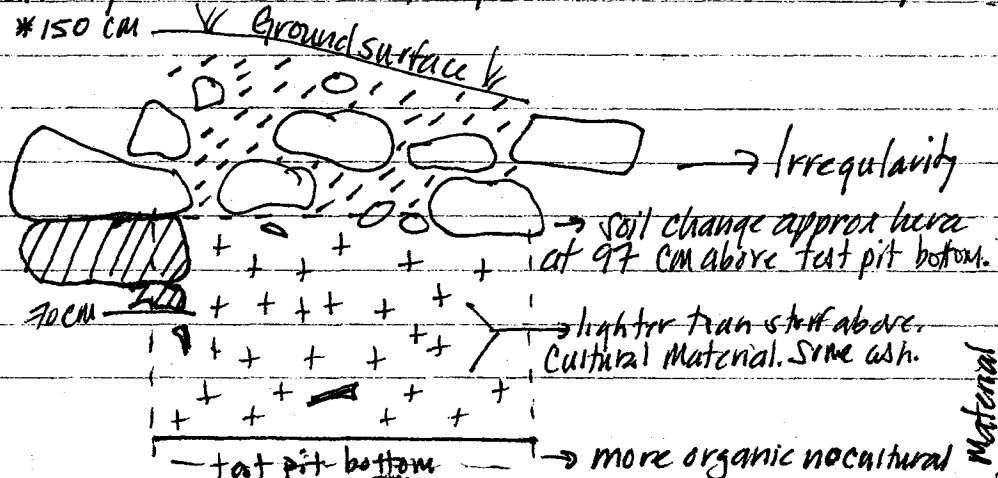 *150 cm
Ground surface
→ Irregularity
→ soil change approx here
at 97 cm above test pit bottom.
70cm
→ lighter than stuff above.
Cultural Material. Some ash.
test pit bottom
→ more organic no cultural
Material